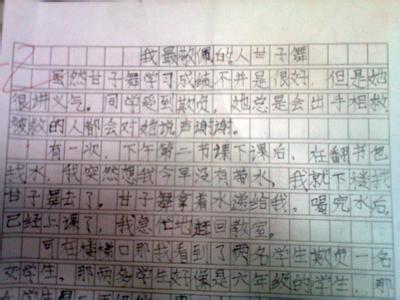 我最敬佩的人甘子舞
虽然甘子舞学习成绩不并是很好，但是她
很讲义气。同学受到欺负，她总是会出手相救
被救的人都会对她说声谢谢。
有一次，下午第二节课下课后，在翻书包
找水，我突然想我今早没有带水，我就下楼找
甘子舞去了。甘子舞拿着水递给我。喝完水后，
已经上课了，我急忙地赶回教室。
可在楼梯口那我看到了两名学生欺负一名
女学生。那两名学生好像是六年级的学生，那